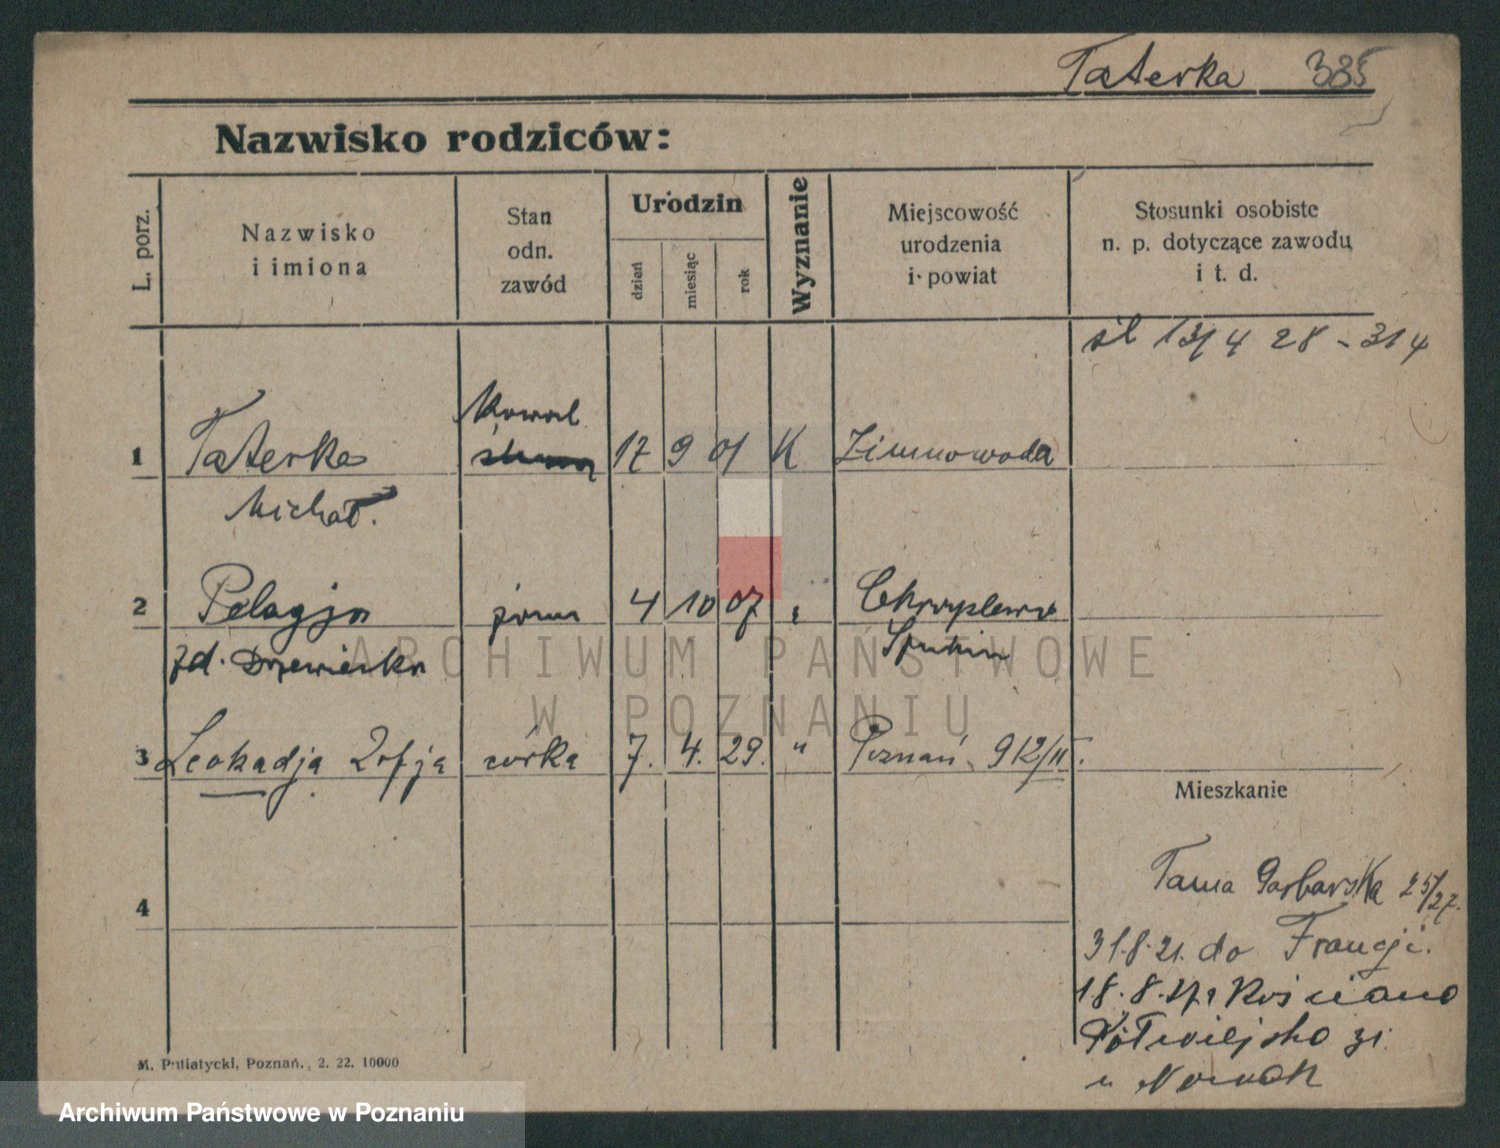 Taterka 385
Nazwisko rodziców:
L. porz.
Nazwisko
i imiona
Stan
odn.
zawód
Urodzin
dzień
miesiąc
rok
Wyznanie
Miejscowość
urodzenia
i powiat
Stosunki osobiste
n. p. dotyczące zawodu
i t. d.
śl 13/4 28 - 314
Kowal
1 Taterka 17 9 01 K Zimnowoda
Michał.
2 Pelagja żona 4 10 07 " Chrzyplewo
zd. Drzewiecka
3 Leokadja Zofja córka 7. 4. 29. " Poznań 912/II.
Mieszkanie
4
Tama Garbarska 25/27.
31.8.21. do Francji.
18.8.
31
u Nowak
M. Putiatycki, Poznań., 2. 22. 10000
ARCHIWUM PAŃSTWOWE
W POZNANIU
Archiwum Państwowe w Poznaniu